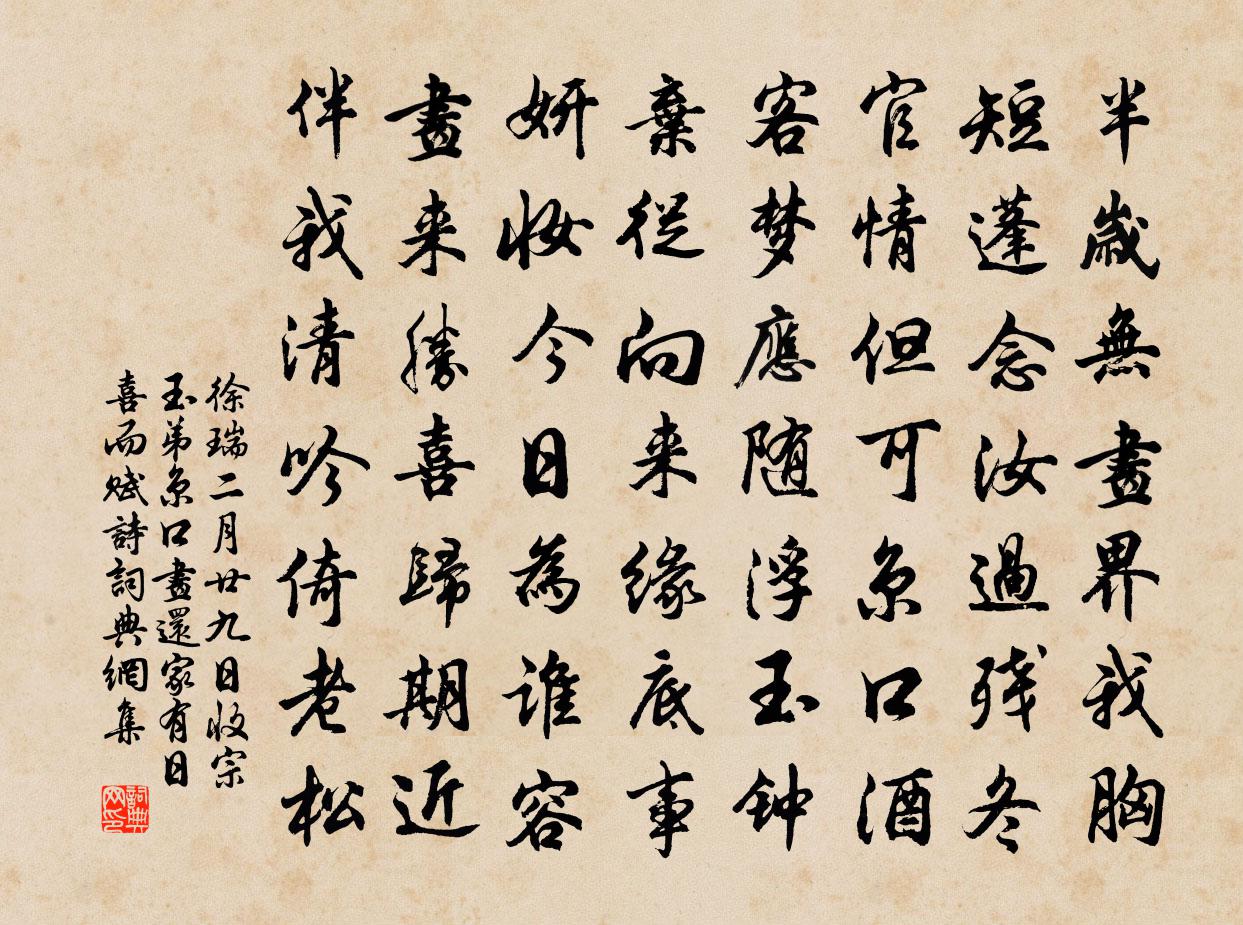 半歲無畫界我胸
短蓬念汝過残冬
官情但可京口酒
客梦應随浮玉钟
棄從向来緣底事
妍妝今日為谁容
畫来勝喜歸期近
伴我清吟倚老松
徐瑞二月廿九日收宗
玉弟京口畫還家有日
喜而赋詩詞典網集
詞典
网印